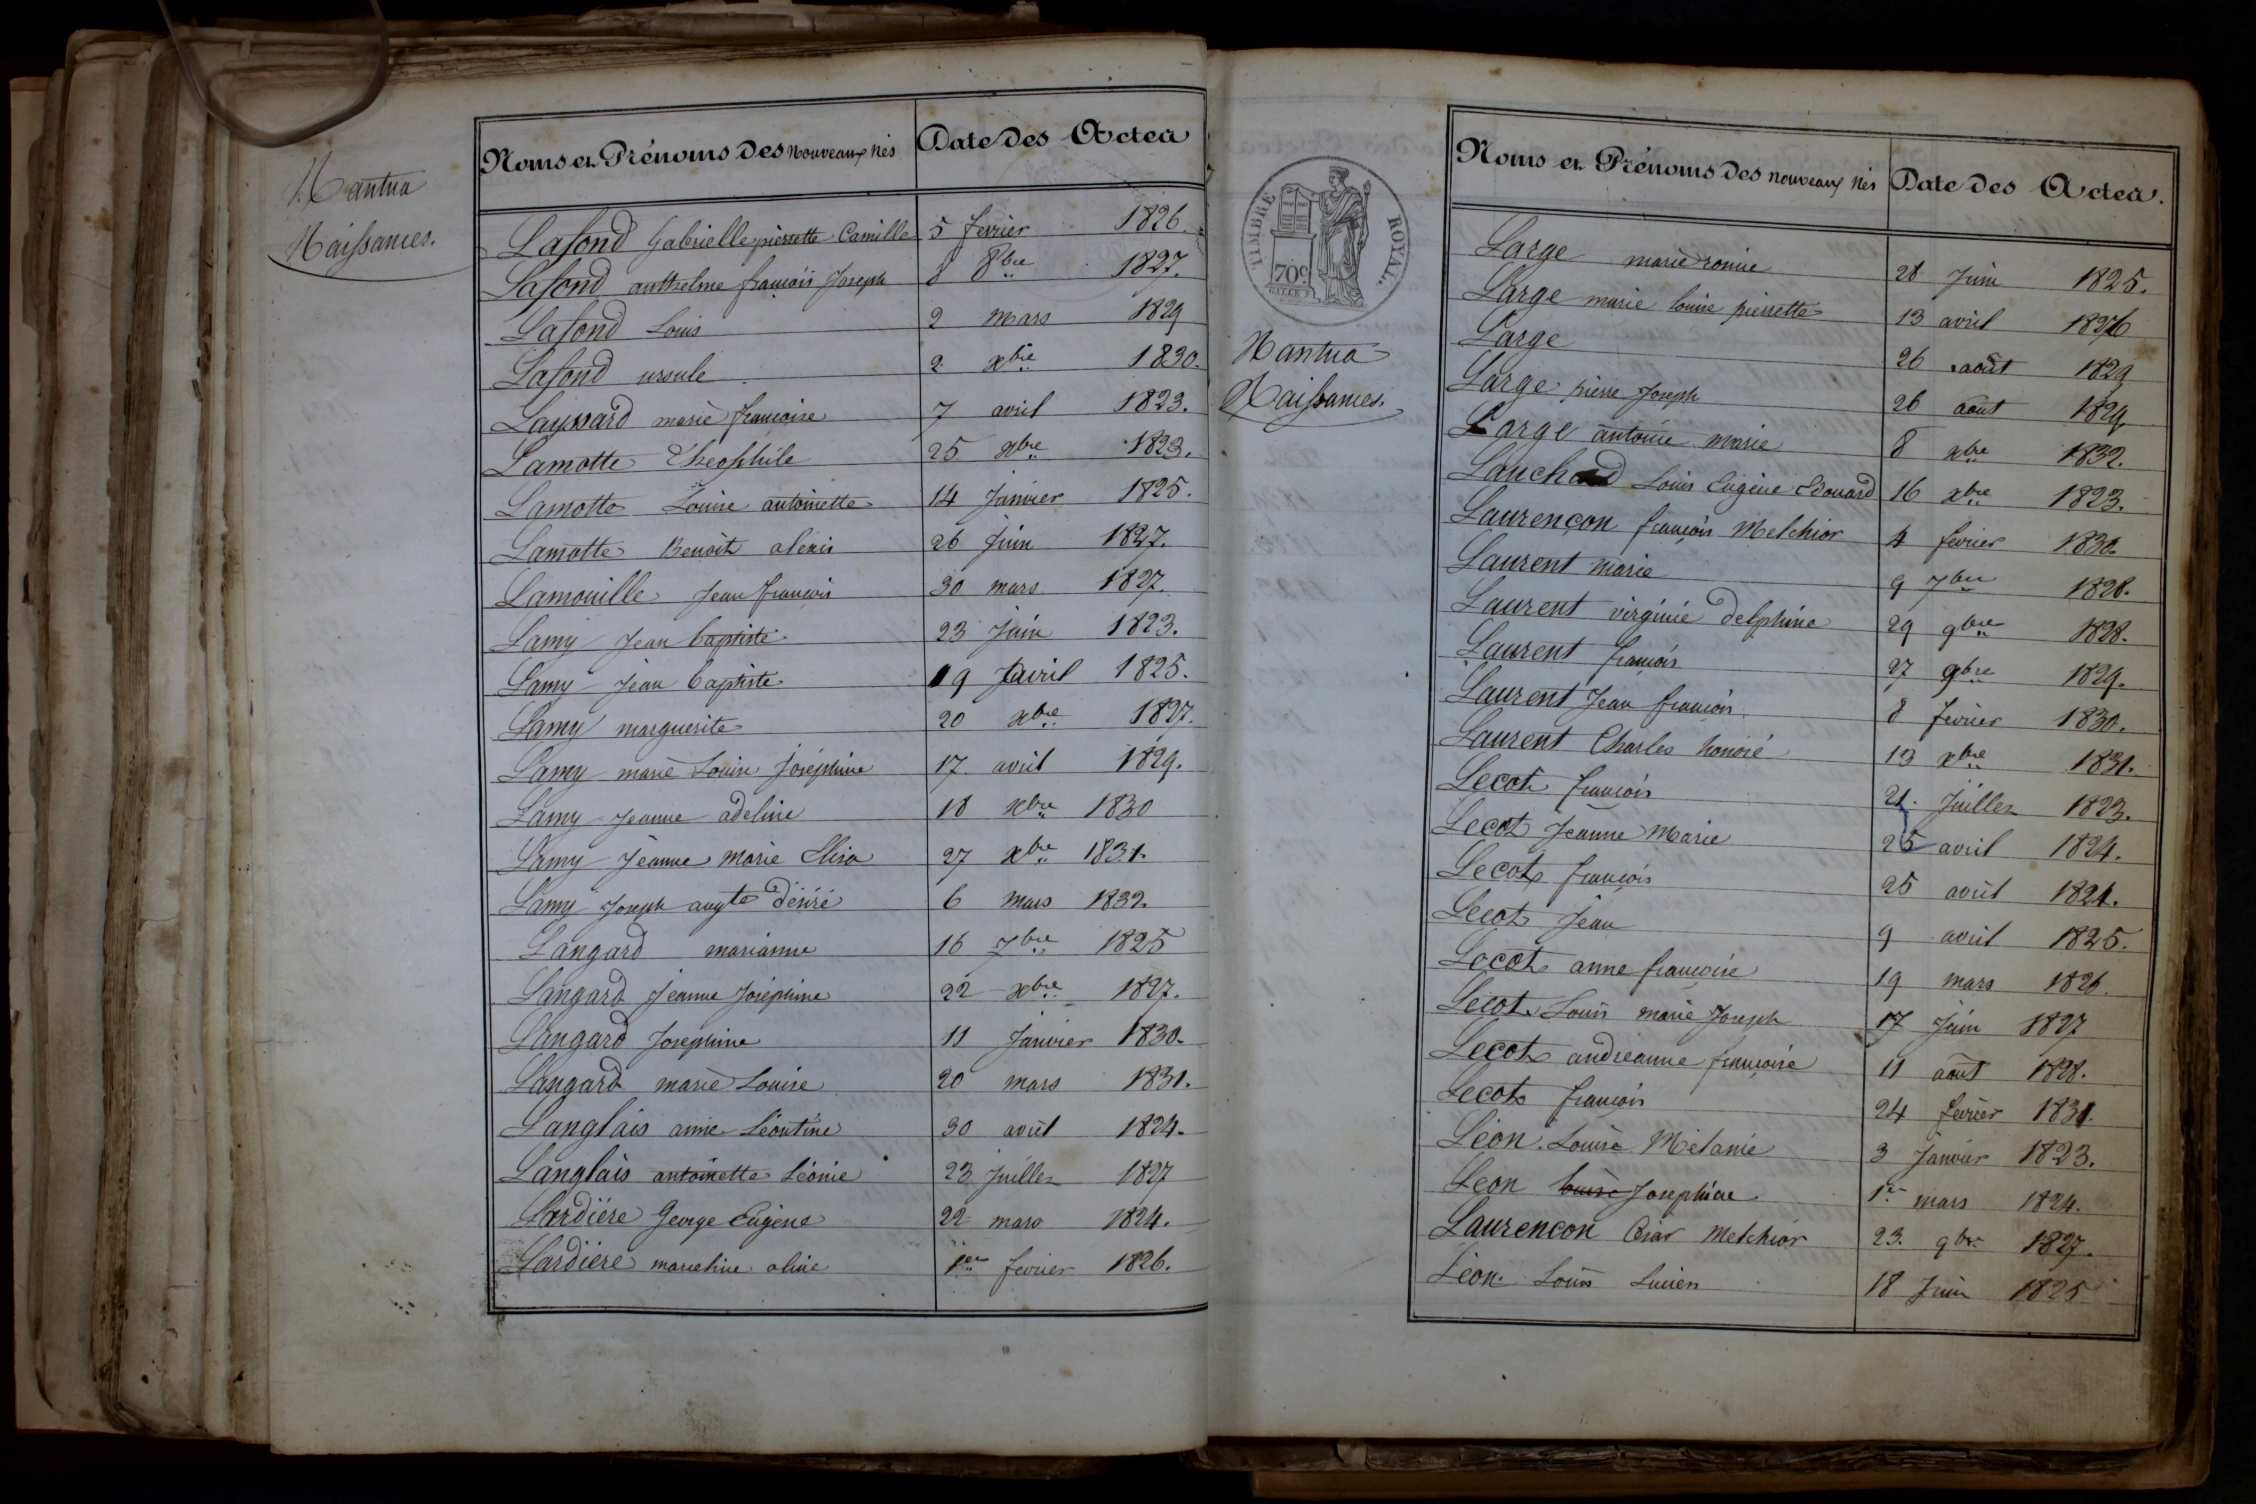 Nantua
Naissances.
Noms et Prénoms Des Nouveaux Nés Date Des Actes
Lafond Gabrielle pierrette Camille 5 fevrier 1826.
Lafond anthelme françois Joseph 8 8bre 1827.
Lafond Louis 2 mars 1829
Lafond ursule 2 xbre 1830.
Layssard marie françoise 7 avril 1823.
Lamotte Théophile 25 xbre 1823.
Lamotte Louise antoinette 14 Janvier 1825.
Lamotte Benoit alexis 26 Juin 1827.
Lamouille Jean françois 30 mars 1827.
Lamy Jean baptiste 23 Juin 1823.
Lamy Jean baptiste 19 avril 1825.
Lamy marguerite 20 xbre 1827.
Lamy marie Louise Joséphine 17 avril 1829.
Lamy Jeanne adeline 18 xbre 1830
Lamy Jeanne Marie Elisa 27 xbre 1831.
Lamy Joseph augte désiré 6 mars 1832.
Langard marianne 16 7bre 1825
Langard Jeanne Joséphine 22 xbre 1827.
Langard Josephine 11 Janvier 1830.
Langard marie Louise 20 mars 1831.
Langlais anne Léontine 30 avril 1824.
Langlais antoinette Léonie 23 Juillet 1827
Lardiére George Eugene 22 mars 1824.
Lardiére marceline aline 1er fevrier 1826.
TIMBRE ROYAL.
70c
Nantua
Naissances.
Noms et Prénoms Des nouveaux Nés Date Des Actes.
Large marie 28 Juin 1825.
Large marie louise pierrette 13 avril 1826
Large 26 août 1829
Large pierre Joseph 26 août 1829
Large antoine marie 8 xbre 1832.
Lauchard Louis Eugène Edouard 16 xbre 1823.
Laurençon françois Melchior 4 fevrier 1830.
Laurent marie 9 7bre 1828.
Laurent virginie delphine 29 9bre 1828.
Laurent françois 27 9bre 1829.
Laurent Jean françois 8 fevrier 1830.
Laurent Charles honoré 13 xbre 1831.
Lecot françois 21. Juillet 1823.
Lecot Jeanne Marie 25 avril 1824.
Lecot françois 25 avril 1824.
Lecot Jean 9 avril 1825.
Locot anne françoise 19 mars 1826.
Lecot Louis marie Joseph 17 Juin 1827
Lecot andreanne françoise 11 août 1828.
Lecot françois 24 fevrier 1831.
Léon Louise Mélanie 3 Janvier 1823.
Leon louise Josephine 1er mars 1824.
Laurencon César Melchior 23. 9bre 1827.
Léon Louis Lucien 18 Juin 1825